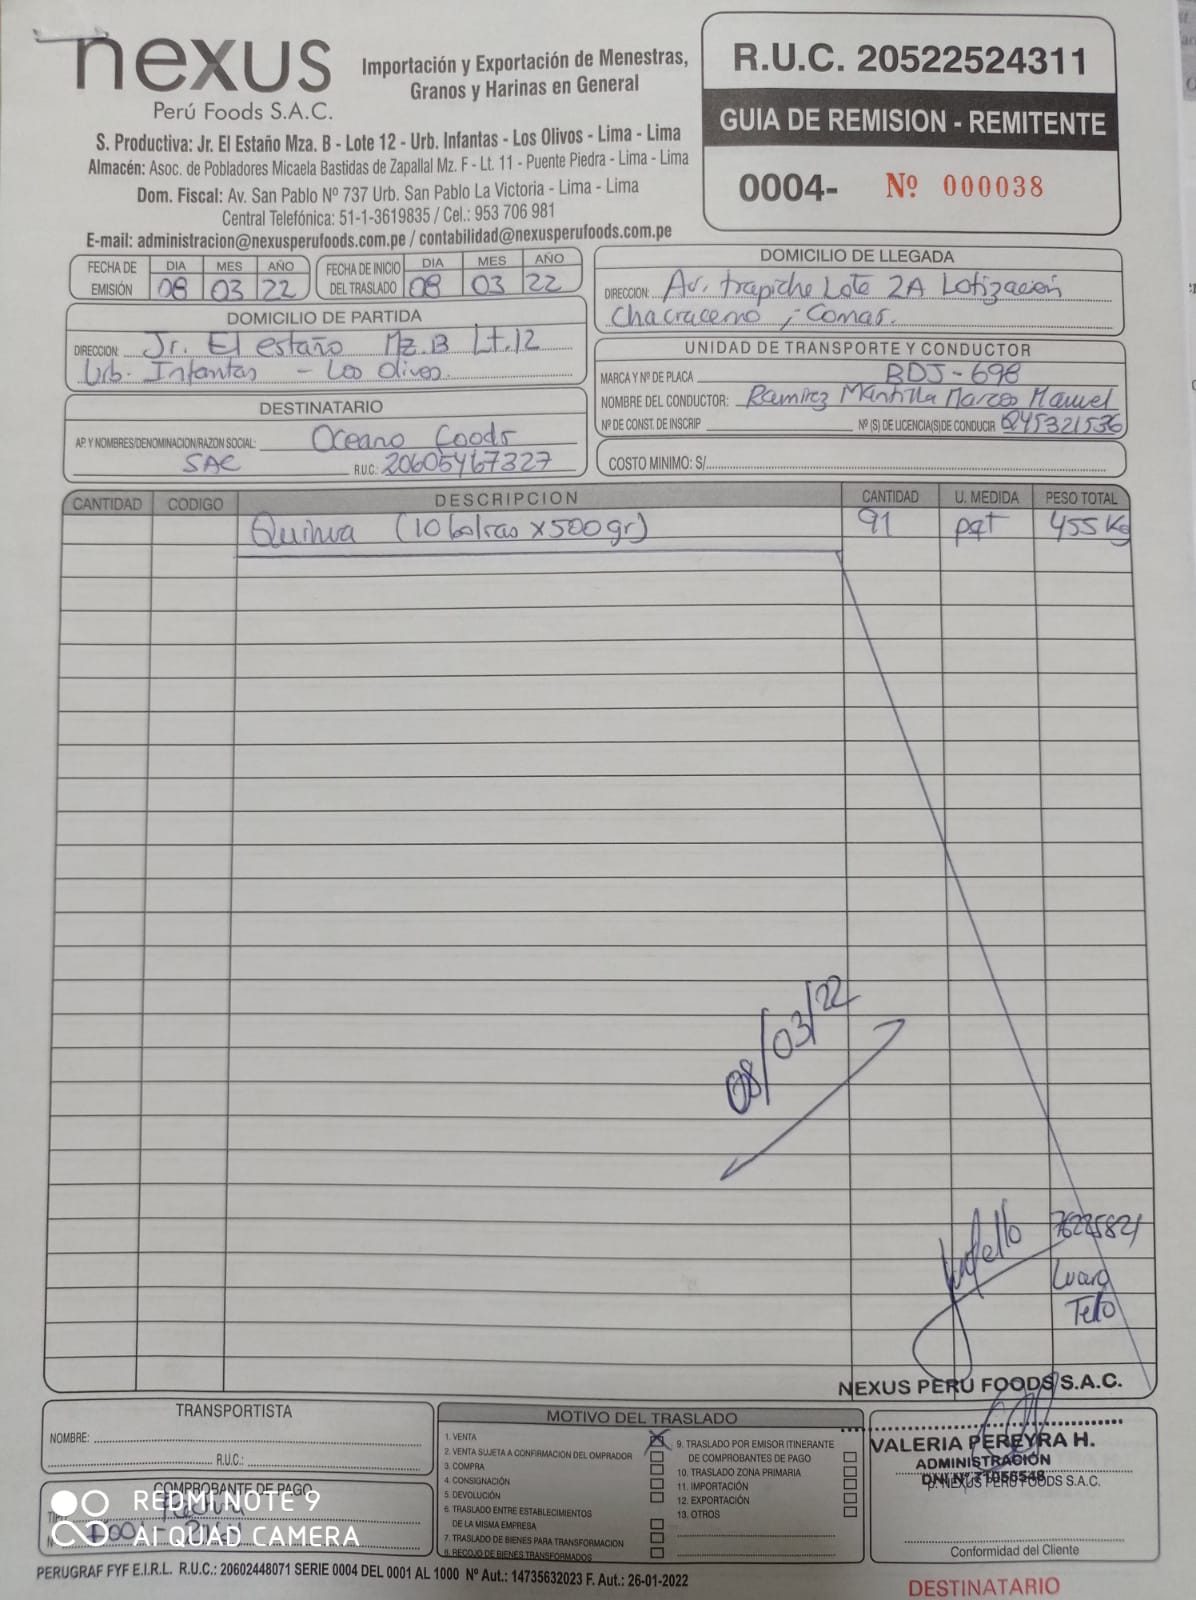 nexus
Perú Foods S.A.C.
Importación y Exportación de Menestras,
Granos y Harinas en General
S. Productiva: Jr. El Estaño Mza. B - Lote 12 - Urb. Infantas - Los Olivos - Lima - Lima
Almacén: Asoc. de Pobladores Micaela Bastidas de Zapallal Mz. F - Lt. 11 - Puente Piedra - Lima - Lima
Dom. Fiscal: Av. San Pablo Nº 737 Urb. San Pablo La Victoria - Lima - Lima
Central Telefónica: 51-1-3619835 / Cel.: 953 706 981
E-mail: administracion@nexusperufoods.com.pe / contabilidad@nexusperufoods.com.pe
R.U.C. 20522524311
GUIA DE REMISION - REMITENTE
0004- Nº 000038
FECHA DE EMISIÓN DIA MES AÑO
08 03 22
FECHA DE INICIO DEL TRASLADO DIA MES AÑO
08 03 22
DOMICILIO DE LLEGADA
DIRECCION: Av. trapiche Lote 2A Lotización
Chacracerro, Comas.
DOMICILIO DE PARTIDA
DIRECCION: Jr. El estaño Mz. B Lt. 12
Urb. Infantas - Los Olivos.
UNIDAD DE TRANSPORTE Y CONDUCTOR
MARCA Y Nº DE PLACA BDJ-698
NOMBRE DEL CONDUCTOR: Ramirez Mantilla Marcos Manuel
Nº DE CONST. DE INSCRIP Nº (S) DE LICENCIA(S) DE CONDUCIR Q45321536
COSTO MINIMO: S/.
DESTINATARIO
AP. Y NOMBRES/DENOMINACION/RAZON SOCIAL: Oceano Foods
SAC R.U.C. 20605467327
CANTIDAD CODIGO DESCRIPCION CANTIDAD U. MEDIDA PESO TOTAL
Quinua (10 bolsas x 500gr) 91 pqt 455 Kg
08/03/22
76225821
Tello
NEXUS PERÚ FOODS S.A.C.
VALERIA PEREYRA H.
ADMINISTRACIÓN
p. NEXUS PERÚ FOODS S.A.C.
Conformidad del Cliente
TRANSPORTISTA
NOMBRE:
R.U.C.:
COMPROBANTE DE PAGO
REDMI NOTE 9
AI QUAD CAMERA
MOTIVO DEL TRASLADO
1. VENTA
2. VENTA SUJETA A CONFIRMACION DEL OMPRADOR
3. COMPRA
4. CONSIGNACIÓN
5. DEVOLUCIÓN
6. TRASLADO ENTRE ESTABLECIMIENTOS
DE LA MISMA EMPRESA
7. TRASLADO DE BIENES PARA TRANSFORMACION
8. RECOJO DE BIENES TRANSFORMADOS
9. TRASLADO POR EMISOR ITINERANTE
DE COMPROBANTES DE PAGO
10. TRASLADO ZONA PRIMARIA
11. IMPORTACIÓN
12. EXPORTACIÓN
13. OTROS
PERUGRAF FYF E.I.R.L. R.U.C.: 20602448071 SERIE 0004 DEL 0001 AL 1000 Nº Aut.: 14735632023 F. Aut.: 26-01-2022
DESTINATARIO